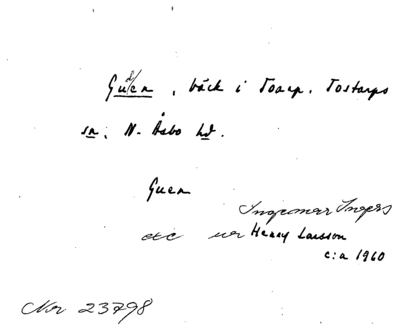 Guen, bäck i Toarp, Tostarps
sn, N. Åsbo hd.
Guen
Ingemar Ingers
etc Henry Larsson
c:a 1960
Nr 23798